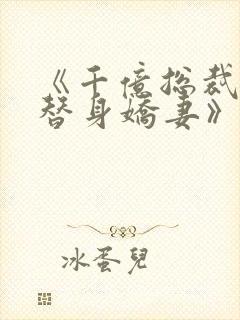 《千億總裁
替身嬌妻》
冰蛋兒